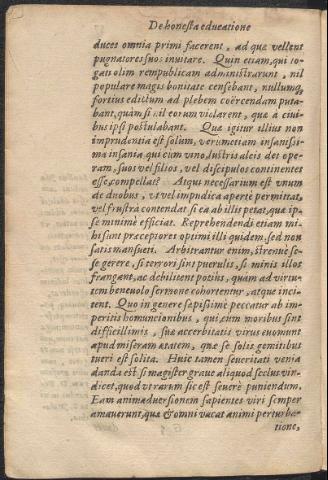 De honesta educatione
duces omnia primi facerent, ad quæ vellent
pugnatores suos inuitare. Quin etiam, qui to-
gati olim rempublicam administrarunt, nil
populare magis bonitate censebant, nullumq́
fortius edictum ad plebem coërcendam puta-
bant, quàm si nil eorum violarent, quæ à ciui-
bus ipsi postulabant. Quæ igitur illius non
imprudentia est solum, verumetiam insanissi-
ma insania, qui cum vino, lustris aleis det ope-
ram, suos vel filios, vel discipulos continentes
esse, compellat? Atqui necessarium est vnum
de duobus, vt vel impudica apertè permittat,
vel frustra contendat si ea ab illis petat, quæ ip-
se minimè efficiat. Reprehendendi etiam mi-
hi sunt præceptores optimi illi quidem, sed non
satis mansueti. Arbitrantur enim, strenuè se-
se gerere, si terrori sint puerulis, si minis illos
frangant, ac debilitent potiùs, quàm ad virtu-
tem beneuolo sermone cohortentur, atque inci-
tent. Quo in genere sæpissimè peccatur ab im-
peritis homuncionibus, qui, cum moribus sint
difficillimis, suæ accerbitatis virus euomunt
apud miseram ætatem, quæ se solis gemitibus
tueri est solita. Huic tamen seueritati venia
danda est si magister graue aliquod scelus vin-
dicet, quod vtrarum sic est seuerè puniendum.
Eam animaduersionem sapientes viri semper
amauerunt, quæ & omni vacat animi perturba-
tione,